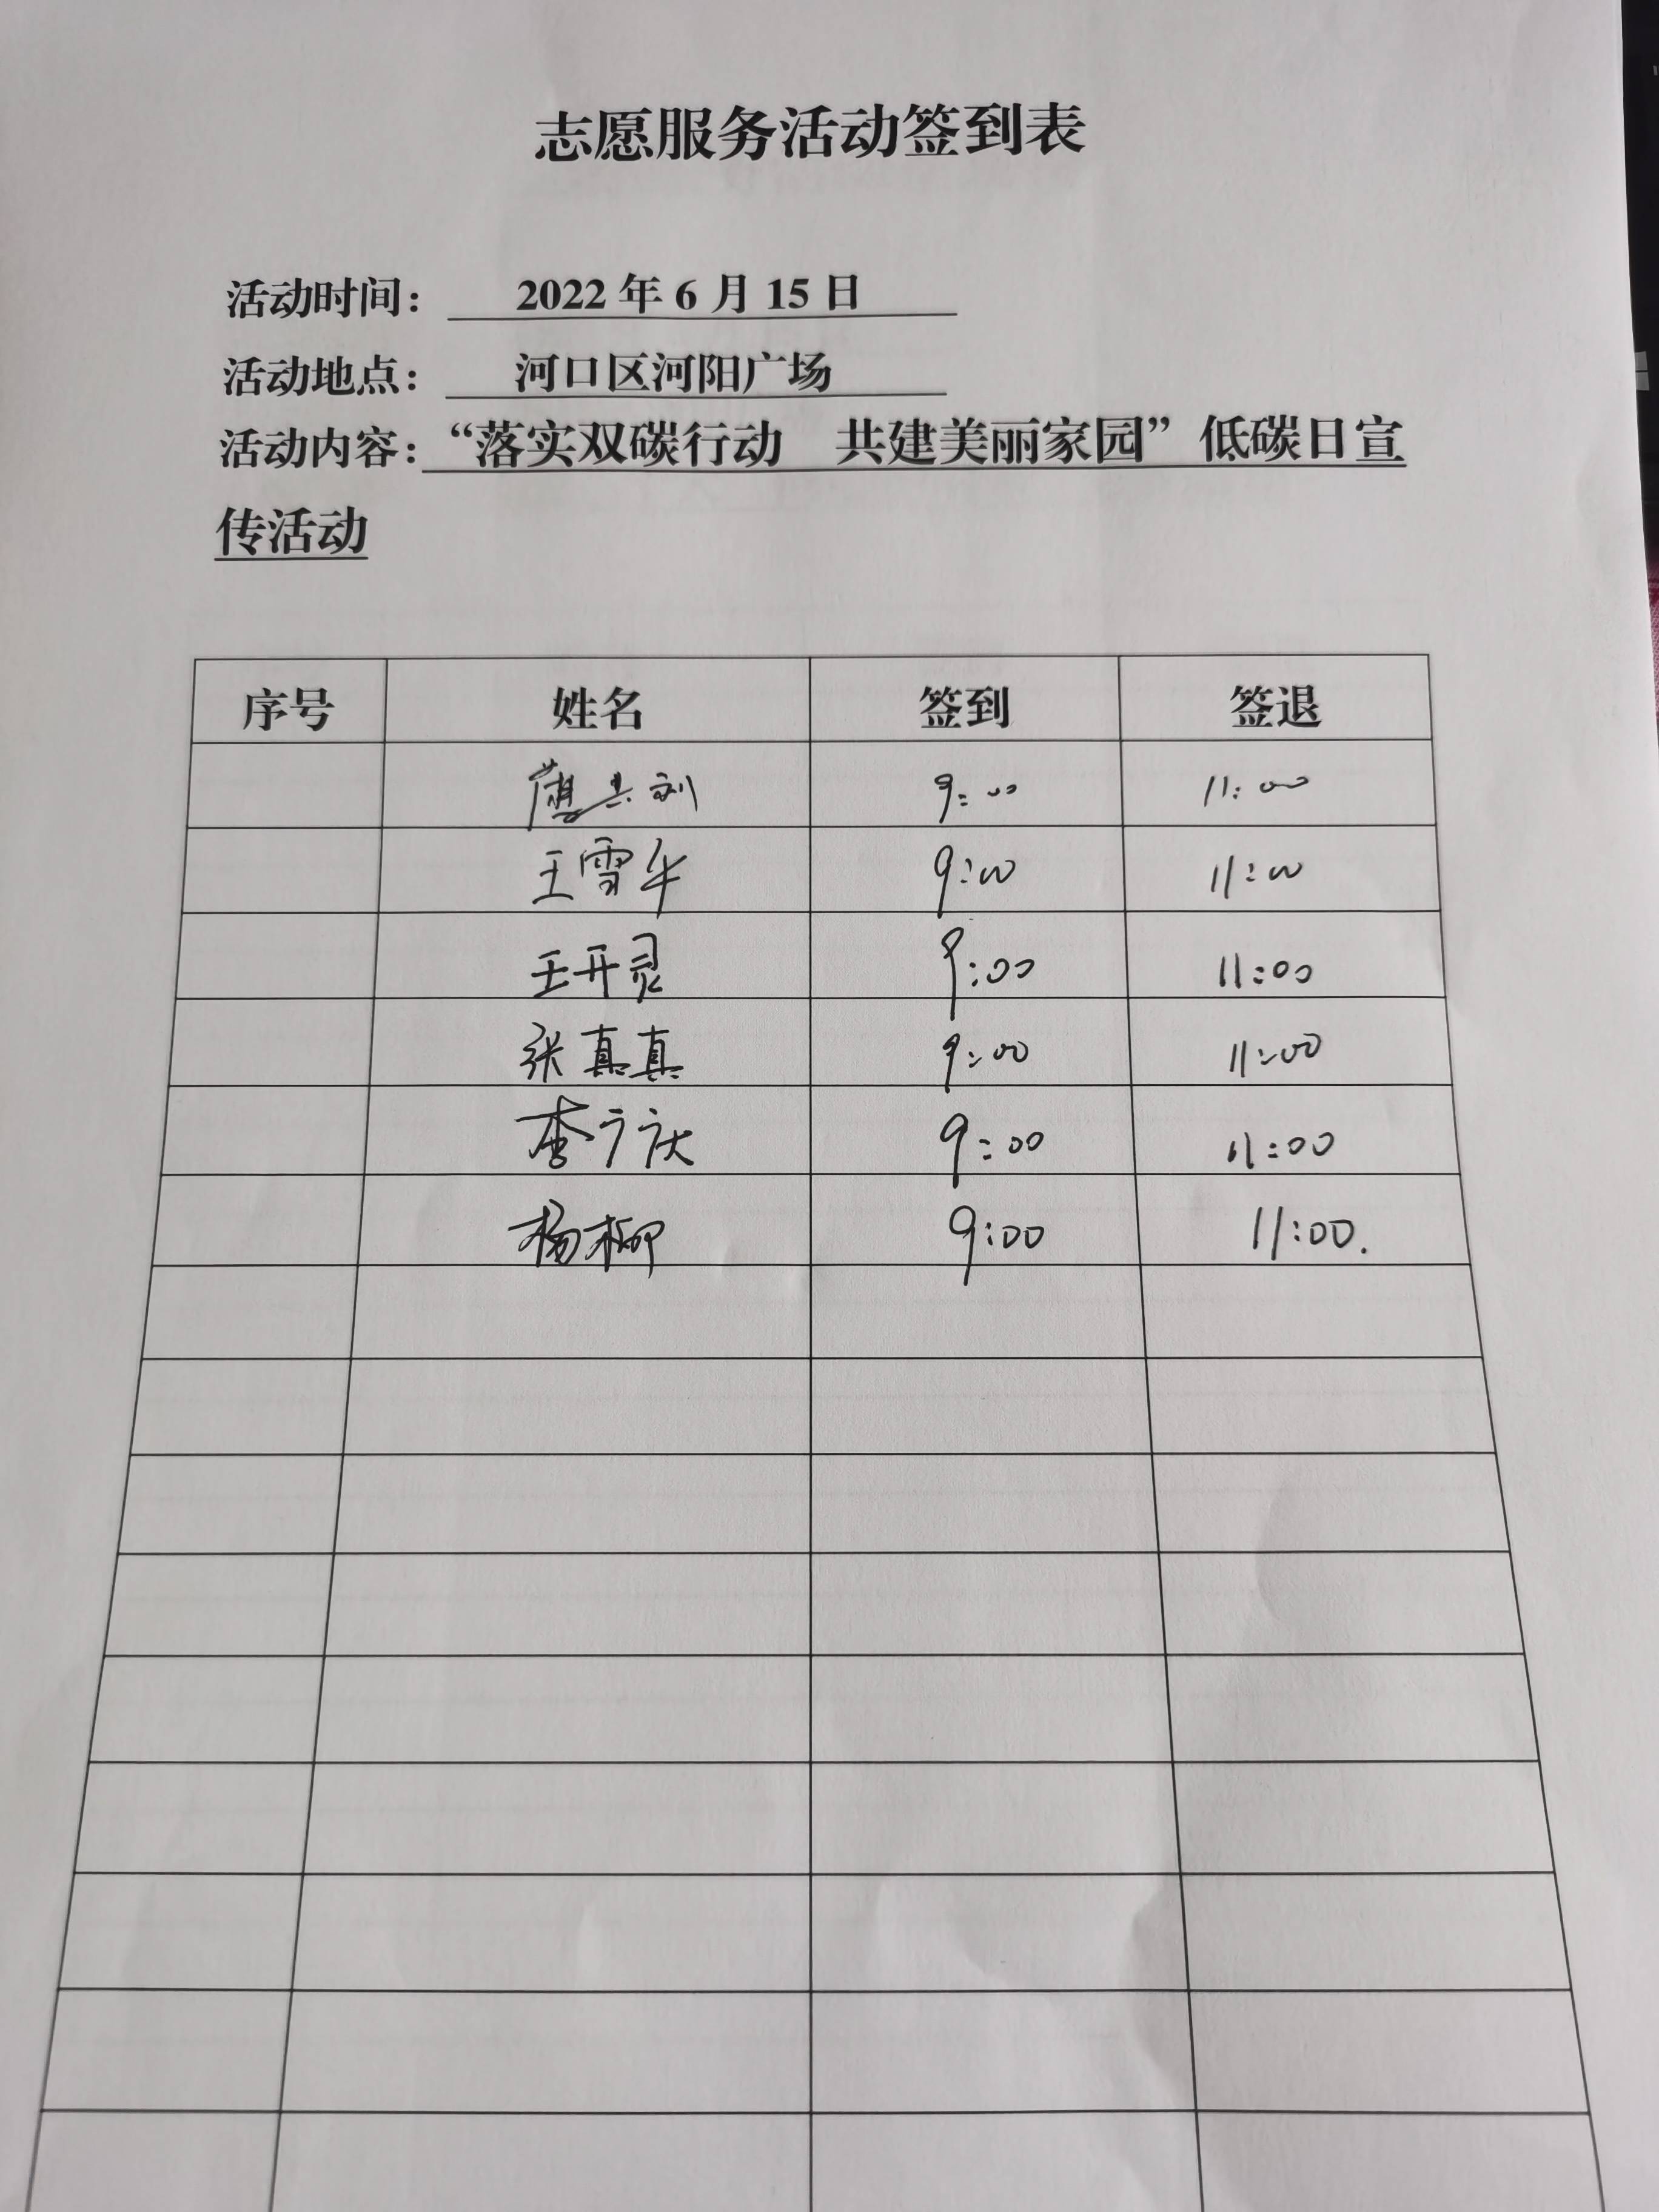 志愿服务活动签到表
活动时间： 2022 年 6 月 15 日
活动地点： 河口区河阳广场
活动内容：“落实双碳行动 共建美丽家园”低碳日宣
传活动
序号 姓名 签到 签退
9:00 11:00
王雪华 9:00 11:00
王开灵 9:00 11:00
张真真 9:00 11:00
李广庆 9:00 11:00
杨柳 9:00 11:00.